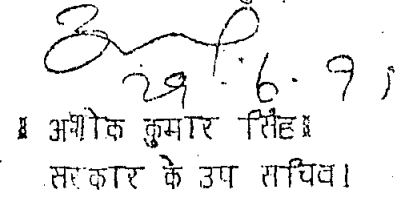 29.6.91
॥ अशोक कुमार सिंह ॥
सरकार के उप सचिव।